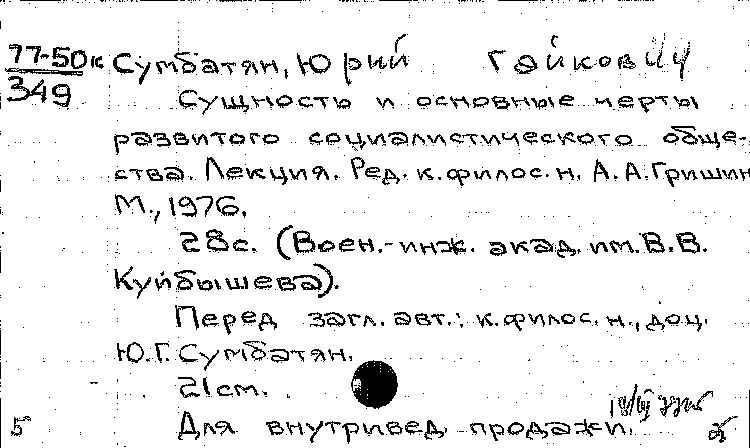 77-50к Сумбатян, Юрий Гайкович
349
Сущность и основные черты
развитого социалистического обще-
ства. Лекция. Ред. к.филос.н. А.А.Гришин
М., 1976.
28с. (Воен.-инж. акад. им. В.В.
Куйбышева).
Перед загл. авт.: к.филос.н., доц.
Ю.Г. Сумбатян.
21см.
5 Для внутривед. продажи.